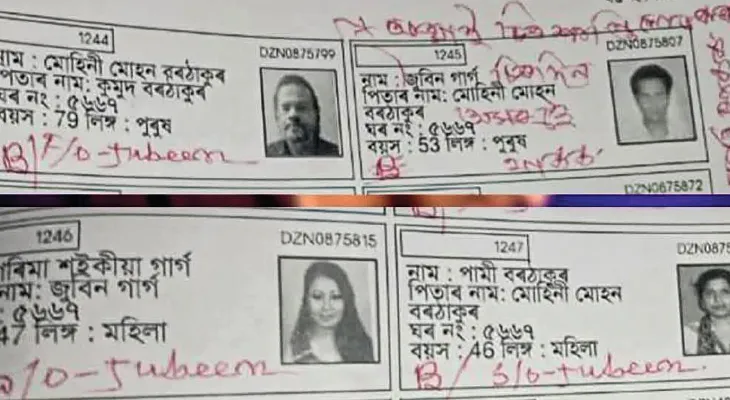 1244
DZN0875799
নাম : মোহিনী মোহন বৰঠাকুৰ
পিতাৰ নাম: কুমুদ বৰঠাকুৰ
ঘৰ নং : ৫৬৬৭
বয়স : 79 লিঙ্গ : পুৰুষ
B/ F/o - Jubeen
1245
DZN0875807
নাম : জুবিন গাৰ্গ
পিতাৰ নাম: মোহিনী মোহন
বৰঠাকুৰ
ঘৰ নং : ৫৬৬৭
বয়স : 53 লিঙ্গ : পুৰুষ
B
DZN0875872
1246
DZN0875815
গৰিমা শইকীয়া গাৰ্গ
নাম: জুবিন গাৰ্গ
: ৫৬৬৭
47 লিঙ্গ : মহিলা
/o - Jubeen
1247
DZN0875
নাম : পামী বৰঠাকুৰ
পিতাৰ নাম: মোহিনী মোহন
বৰঠাকুৰ
ঘৰ নং : ৫৬৬৭
বয়স : 46 লিঙ্গ : মহিলা
B/ S/o - Jubeen.